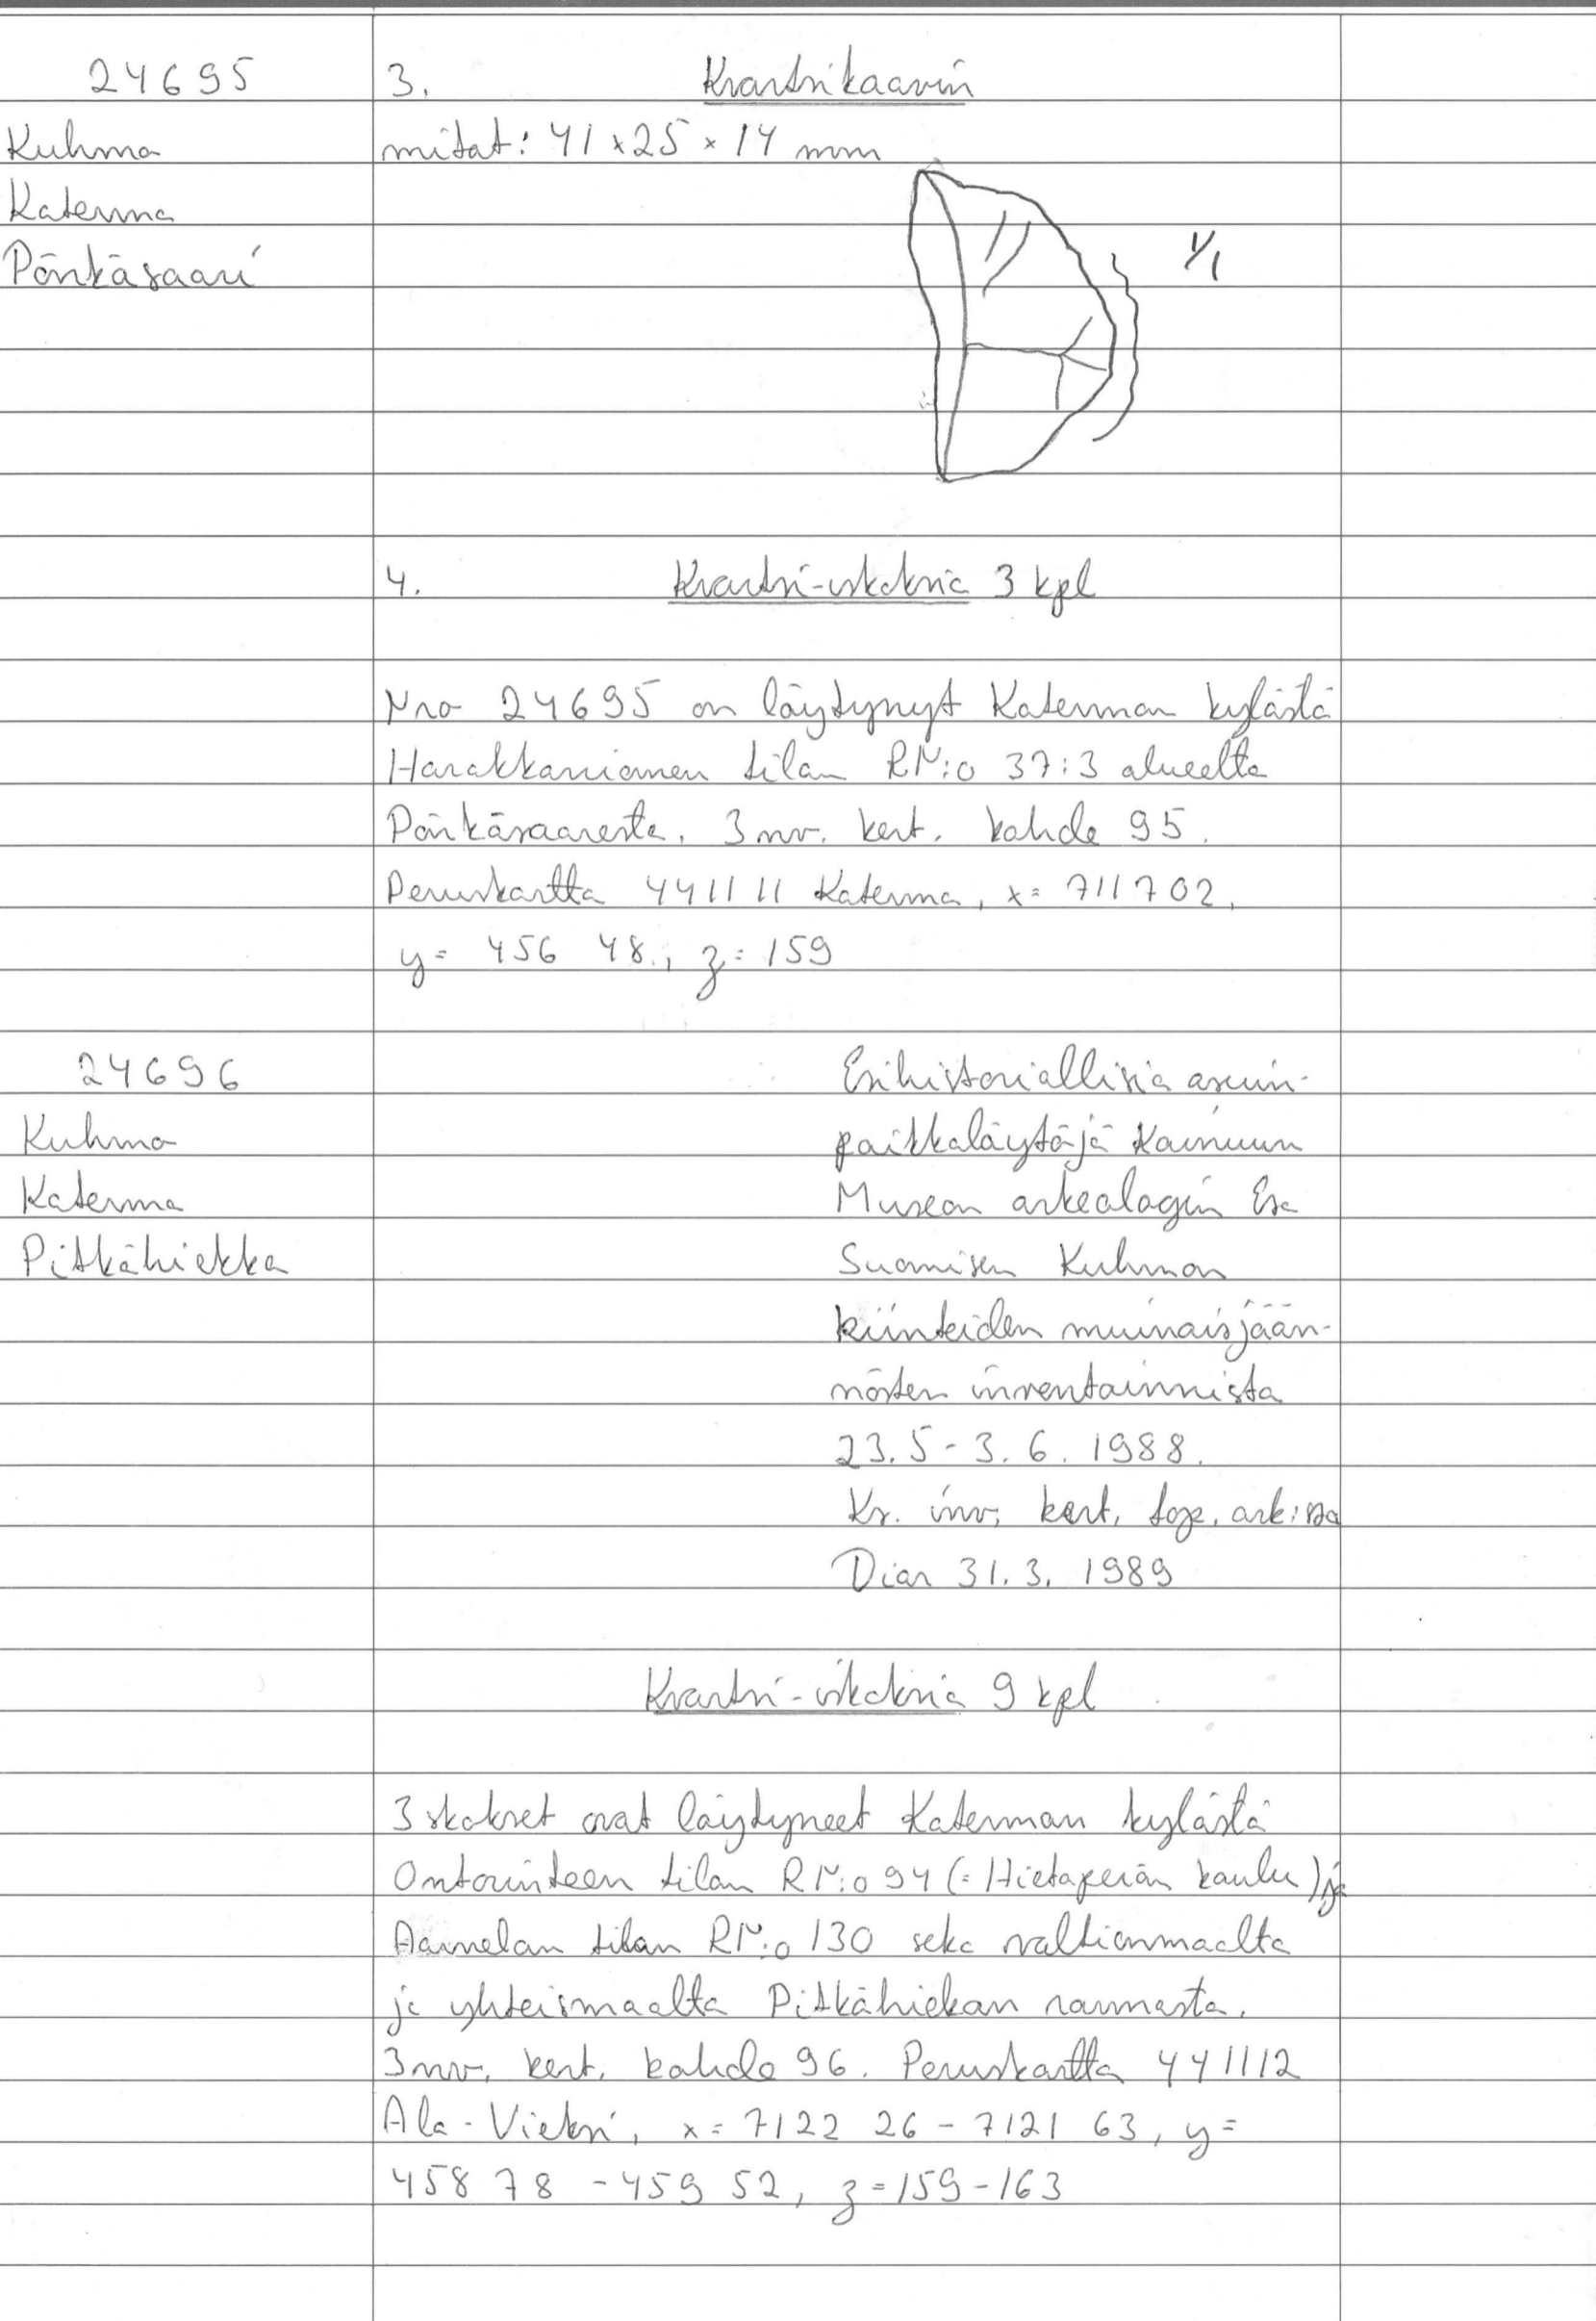 24695
Kuhmo
Katerma
Pönkäsaari
3. Kvartsikaavin
mitat: 41 x 25 x 14 mm
1/1
4. Kvartsi-iskoksia 3 kpl
Nro 24695 on löytynyt Katerman kylästä
Harakkaniemen tilan RN:o 37:3 alueelta
Pönkäsaaresta. Inv. kert. kohde 95.
Peruskartta 4411 11 Katerma, x= 7117 02,
y= 456 48., z= 159
24696
Kuhmo
Katerma
Pitkähiekka
Esihistoriallisia asuin-
paikkalöytöjä Kainuun
Museon arkeologin Esa
Suomisen Kuhmon
kiinteiden muinaisjään-
nösten inventoinnista
23.5 - 3.6. 1988.
Ks. inv. kert. top. ark:ssa
Diar 31.3. 1989
Kvartsi-iskoksia 9 kpl
Iskokset ovat löytyneet Katerman kylästä
Ontorinteen tilan RN:o 94 (= Hietaperän koulu) ja
Aarnelan tilan RN:o 130 sekä valtionmaalta
ja yhteismaalta Pitkähiekan rannasta.
Inv. kert. kohde 96. Peruskartta 4411 12
Ala-Vieksi, x= 7122 26 - 7121 63, y=
458 78 - 459 52, z= 159-163